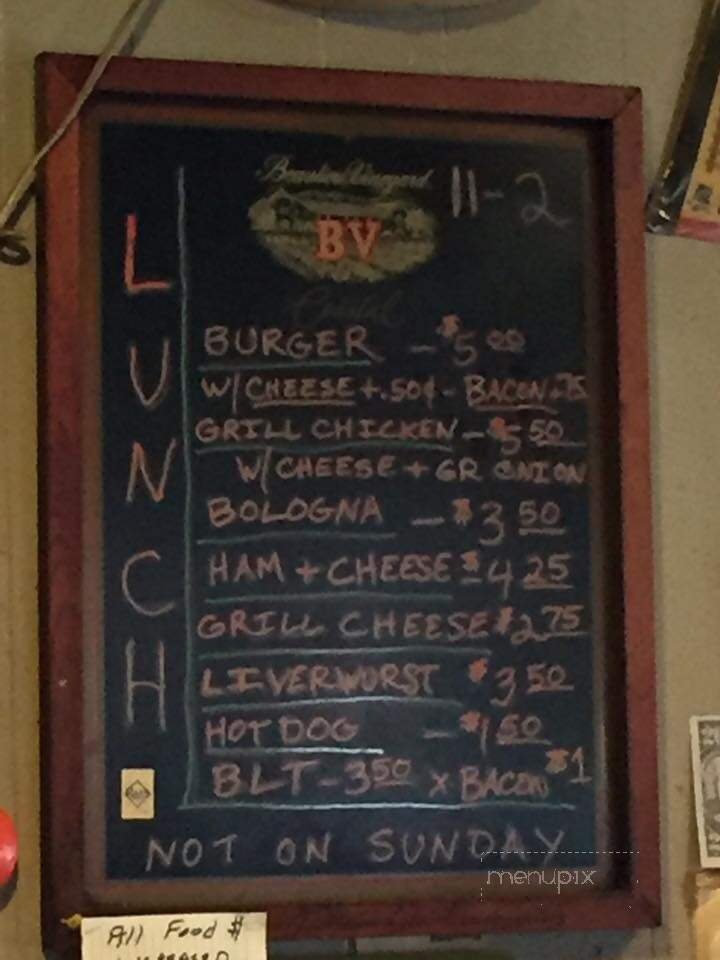 Beaulieu Vineyard
11-2
BV
Coastal
LUNCH
BURGER - $5 00
W/ CHEESE + .50¢ - BACON .75
GRILL CHICKEN - $5 50
W/ CHEESE + GR ONION
BOLOGNA - $3 50
HAM + CHEESE $4 25
GRILL CHEESE $2 75
LIVERWURST $3 50
HOT DOG - $1 50
BLT - 3 50 x BACON $1
NOT ON SUNDAY
menupix
All Food $